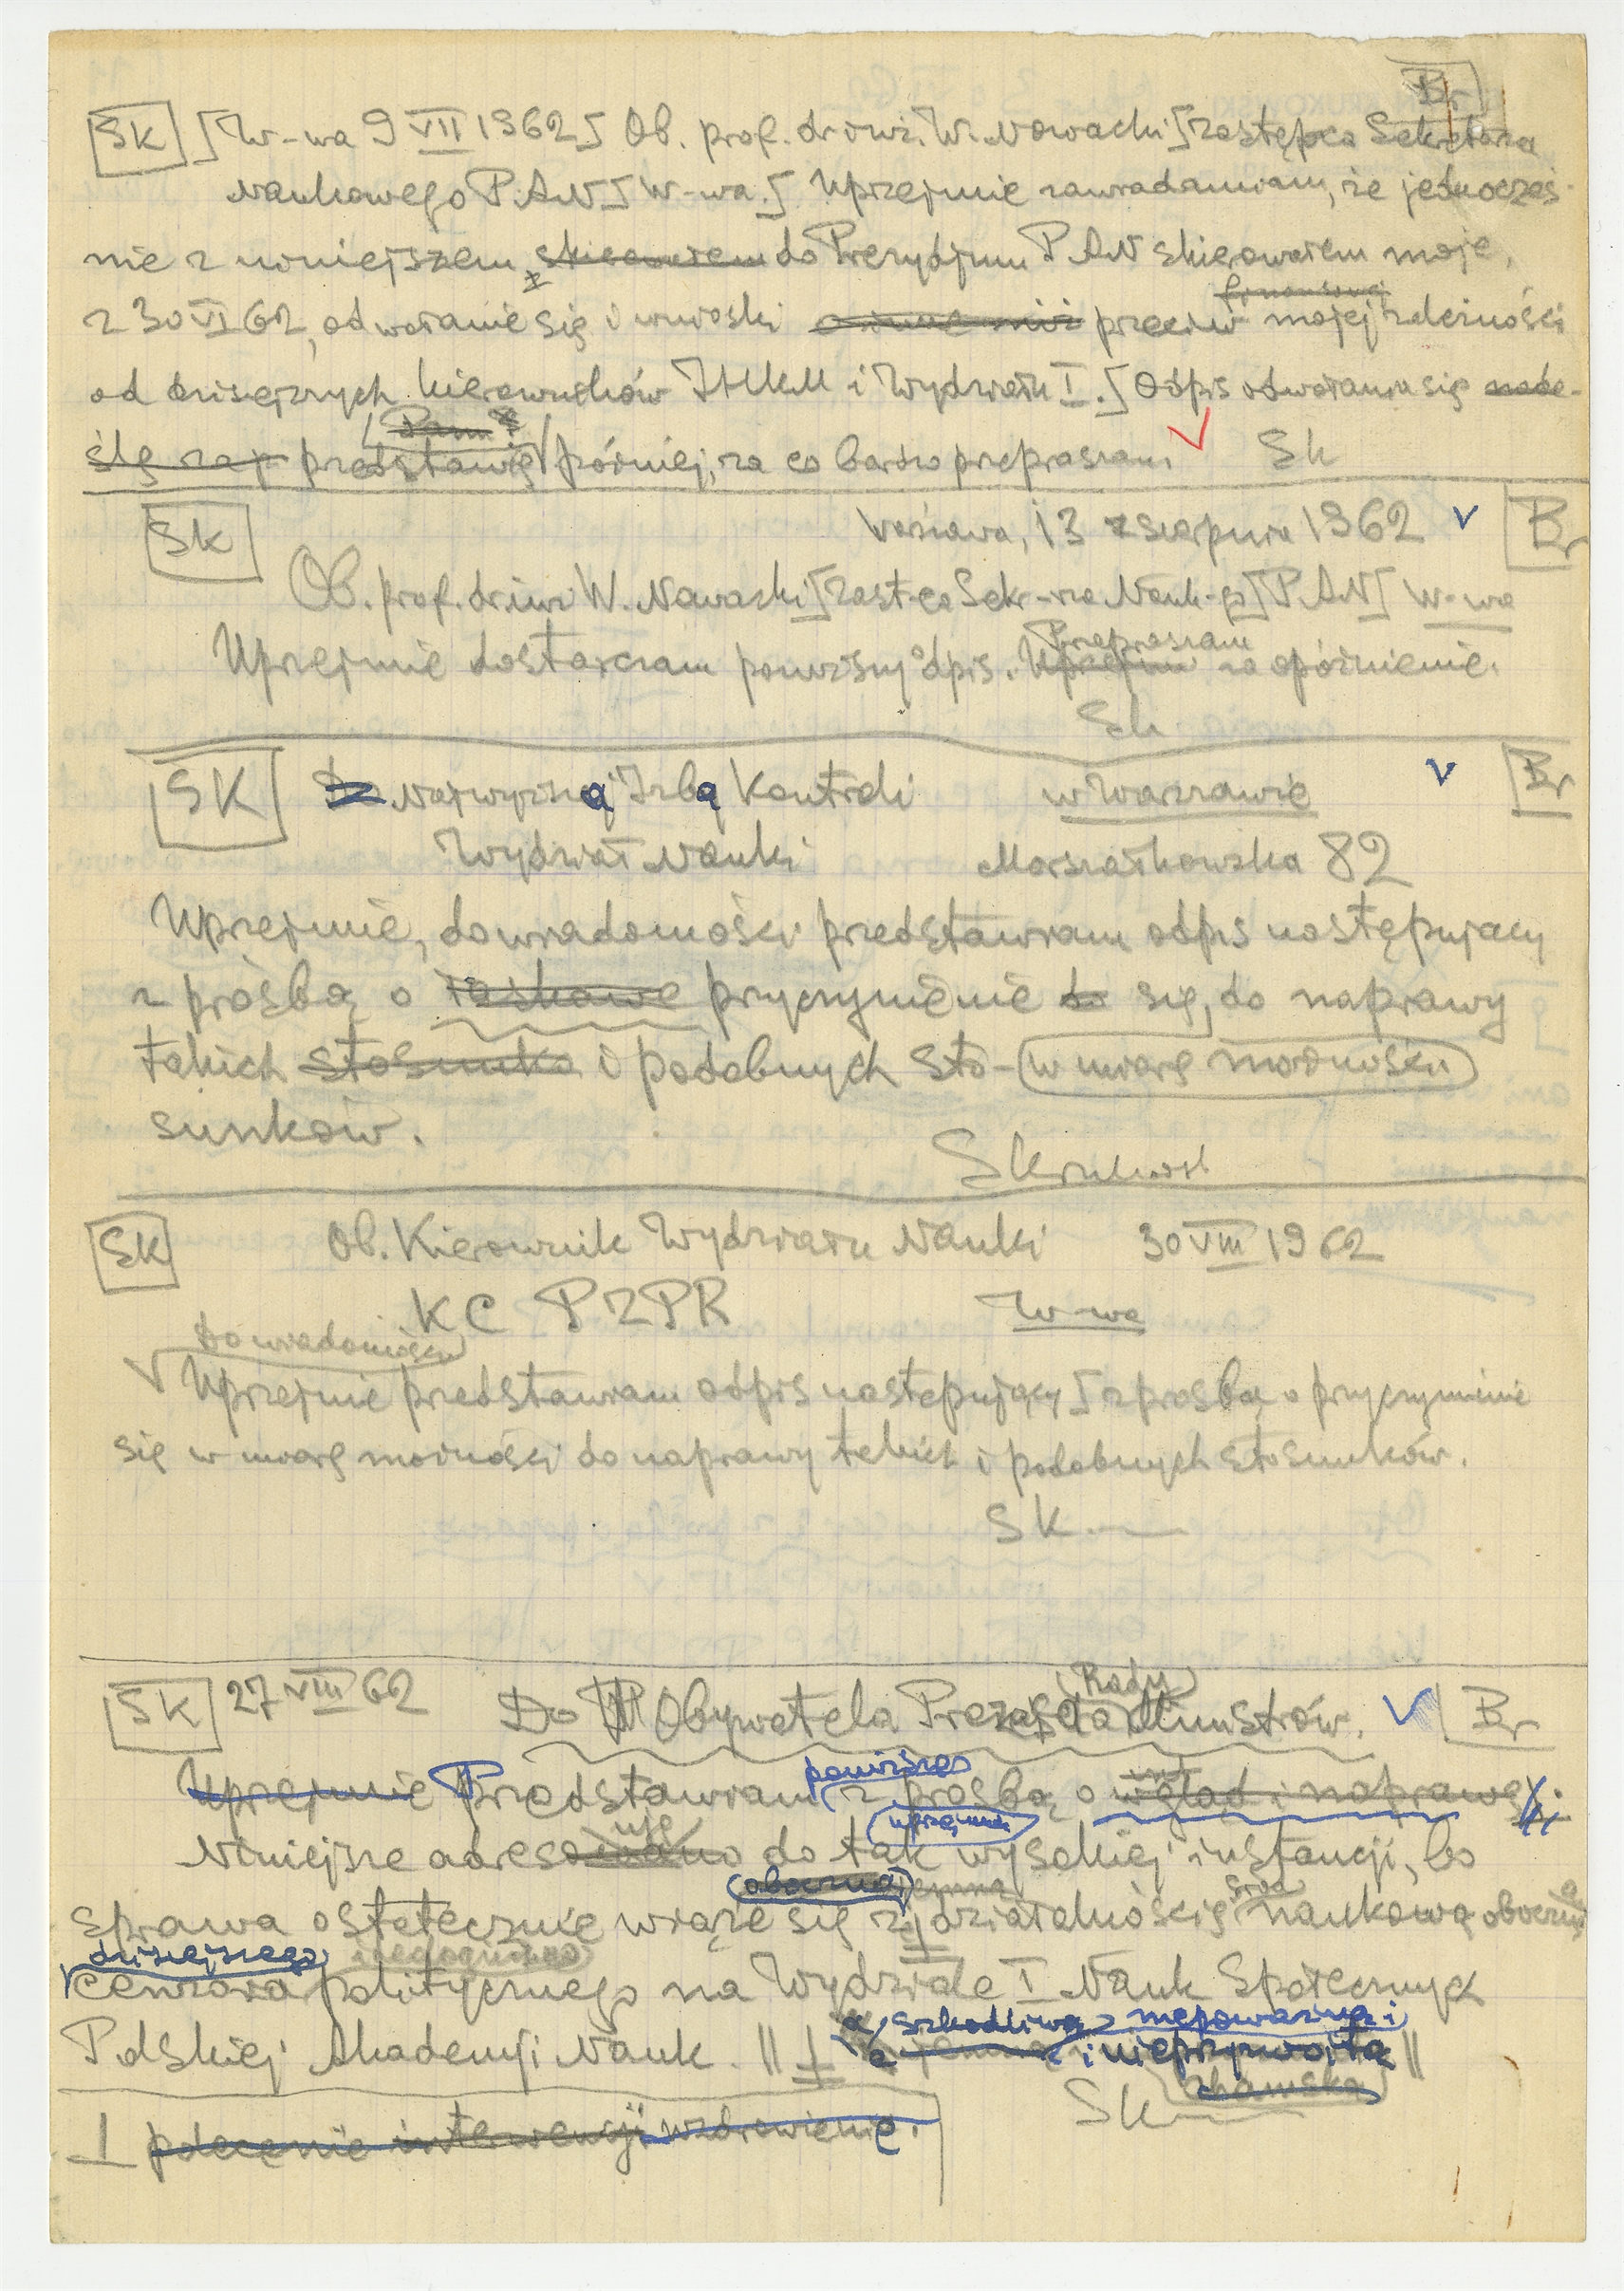 Br
SK [W-wa 9 VII 1962] Ob. prof. dr inż. W. Nowacki [zastępca Sekretarza
Naukowego PAN [W-wa.] Uprzejmie zawiadamiam, że jednocześ-
nie z niniejszem skierowałem do Prezydjum PAN skierowałem moje,
z 30 VI 62, odwołanie się i wnioski przeciw mojej zależności
finansowej
od dzisiejszych kierowników IHKM i Wydziału I. [Odpis odwołania się nade-
Panu
ślę zap przedstawię później, za co bardzo przepraszam. Sk
SK Warszawa, 13 sierpnia 1962 V Br
Ob. prof. dr inż W. Nowacki [zast-ca Sekr-rza Nauk-go [PAN [W-wa
Przepraszam
Uprzejmie dostarczam powyższy odpis. Uprzejmie za opóźnienie.
Sk
SK Do Najwyższą Izbą Kontroli w Warszawie V Br
Wydział Nauki Marszałkowska 82
Uprzejmie, do wiadomości przedstawiam odpis następujący
z prośbą o łaskawe przyczynienie do się, do naprawy
takich stosunkó i podobnych sto- w miarę możności
sunków.
Skrukwsk
SK Ob. Kierownik Wydziału Nauki 30 VIII 1962
KC PZPR W-wa
Do wiadomości
V Uprzejmie przedstawiam odpis następujący [z prośbą o przyczynienie
się w miarę możności do naprawy takich i podobnych stosunków.
SK
SK 27 VIII 62 Do Obywatela Prezesa Ministrów. V Br
Rady
powyższe
Uprzejmie Przedstawiam z prośbą o wgląd i naprawę.
uje uprzejmie
Niniejsze adresowano do tak wysokiej instancji, bo
oboczną
sprawa ostatecznie wiąże się z działalnością naukową oboczną
dzisiejszego
cenzora politycznego na Wydziale I Nauk Społecznych
a szkodliwą niepoważną i
Polskiej Akademji Nauk. || a i nieprzywoitą ||
chamską
Sk
polecenie interwencji uzdrowienie.